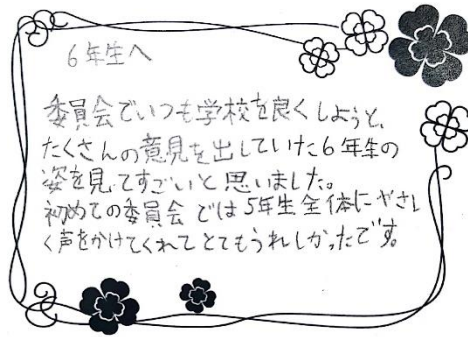 6年生へ
委員会でいつも学校を良くしようと、
たくさんの意見を出していた6年生の
姿を見てすごいと思いました。
初めての委員会では5年生全体にやさし
く声をかけてくれてとてもうれしかったです。